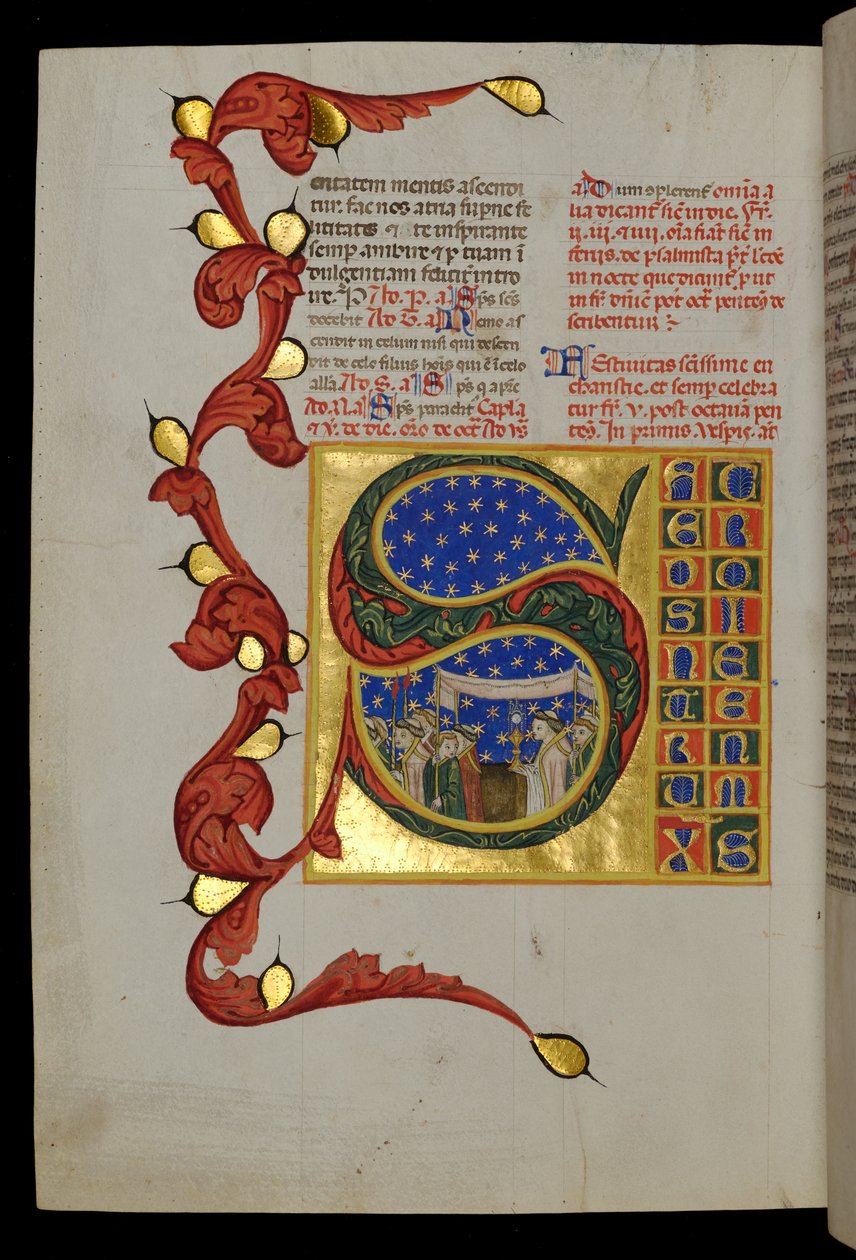 entatem mentis ascendi
tur. fac nos atria supne fe
licitatis & te inspirante
semp ambire & p tuam i
dulgentiam feliciter intro
ire. P Ad. P. a Sps scs
docebit Ad T. a Nemo as
cendit in celum nisi qui descen
dit de celo filius hois qui e i celo
alla. Ad. S. a Sps q a pre
Ad. N. a Sps paraclit Capla
& V. de die. Oro de oct Ad vs
a Dum 9plerent omia a
lia dicant sic in die. Fr
ij. iij. & iiij. oia fiat sic in
feriis. de psalmista pt lcoes
in nocte que dicunt put
in fr dnice post oct pentes de
scribentur
Festivitas scissime eu
charistie. et semp celebra
tur fr. V. post octava pen
tes. In primis. Vespis. at
S
A C
E R
D O
S I
N E
T E
R N
U M
X S